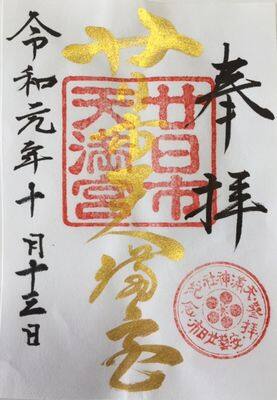 奉拝
廿日市天満宮
廿日市
天満宮
令和元年十月十三日